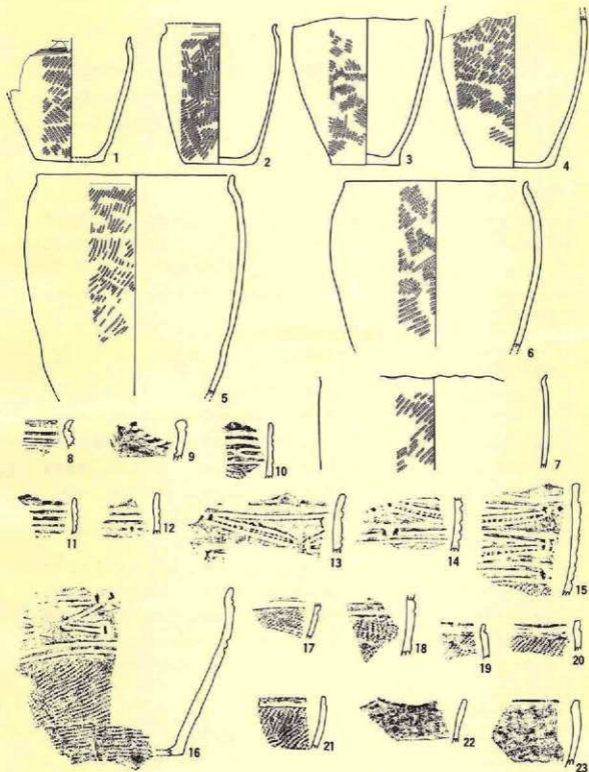 1 2 3 4
5 6
7
8 9 10
11 12 13 14 15
16 17 18 19 20
21 22 23